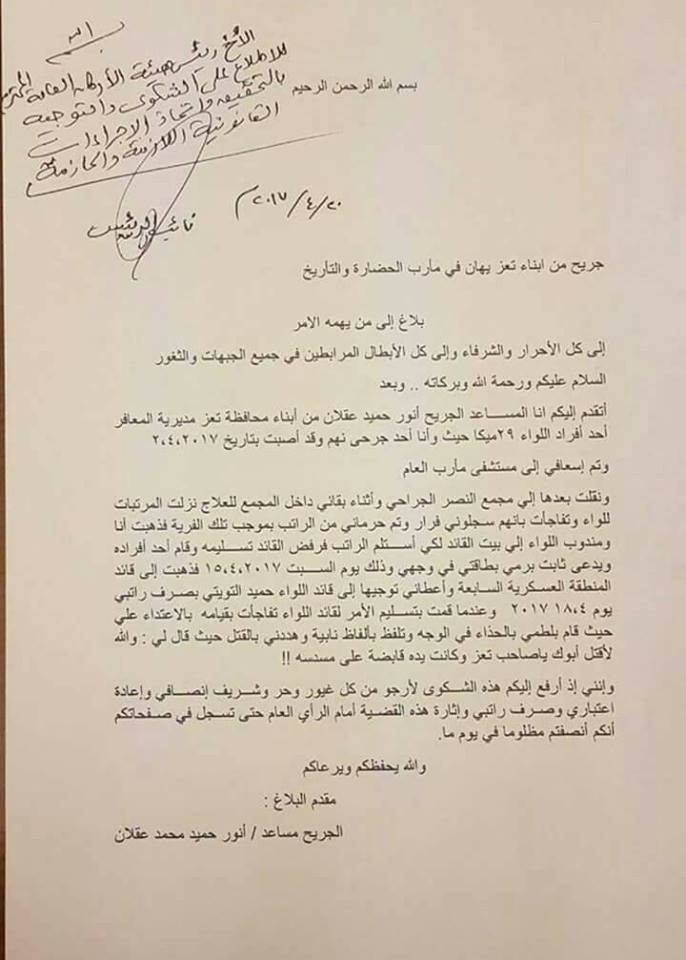 بسم الله
الأخ رئيس هيئة الأركان العامة المحترم
للاطلاع على الشكوى والتوجيه
بالتحقيق واتخاذ الاجراءات
القانونية اللازمة والحازمة
٢٠١٧/٤/٢٠م
نائب الرئيس
بسم الله الرحمن الرحيم
جريح من ابناء تعز يهان في مأرب الحضارة والتأريخ
بلاغ إلى من يهمه الامر
إلى كل الأحرار والشرفاء وإلى كل الأبطال المرابطين في جميع الجبهات والثغور
السلام عليكم ورحمة الله وبركاته .. وبعد
أتقدم إليكم انا المساعد الجريح أنور حميد عقلان من أبناء محافظة تعز مديرية المعافر
أحد أفراد اللواء ٢٩ميكا حيث وأنا أحد جرحى نهم وقد أصبت بتاريخ ٢،٤،٢٠١٧
وتم إسعافي إلى مستشفى مأرب العام
ونقلت بعدها إلي مجمع النصر الجراحي وأثناء بقائي داخل المجمع للعلاج نزلت المرتبات
للواء وتفاجأت بانهم سجلوني فرار وتم حرماني من الراتب بموجب تلك الفرية فذهبت أنا
ومندوب اللواء إلي بيت القائد لكي أستلم الراتب فرفض القائد تسليمه وقام أحد أفراده
ويدعى ثابت برمي بطاقتي في وجهي وذلك يوم السبت ١٥،٤،٢٠١٧ فذهبت إلى قائد
المنطقة العسكرية السابعة وأعطاني توجيها إلى قائد اللواء حميد التويتي بصرف راتبي
يوم ١٨،٤ ٢٠١٧ وعندما قمت بتسليم الأمر لقائد اللواء تفاجأت بقيامه بالاعتداء علي
حيث قام بلطمي بالحذاء في الوجه وتلفظ بألفاظ نابية وهددني بالقتل حيث قال لي : والله
لأقتل أبوك ياصاحب تعز وكانت يده قابضة على مسدسه !!
وإنني إذ أرفع إليكم هذه الشكوى لأرجو من كل غيور وحر وشريف إنصافي وإعادة
اعتباري وصرف راتبي وإثارة هذه القضية أمام الرأي العام حتى تسجل في صفحاتكم
أنكم أنصفتم مظلوما في يوم ما.
والله يحفظكم ويرعاكم
مقدم البلاغ :
الجريح مساعد / أنور حميد محمد عقلان